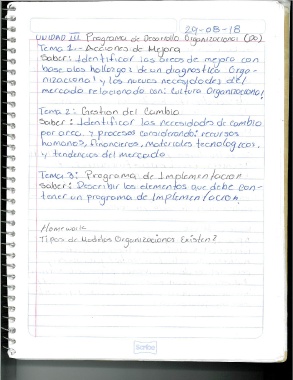 29-08-18
UNIDAD III Programa de Desarrollo Organizacional (DO)
Tema 1.- Acciones de Mejora
Saber: Identificar las áreas de mejora con
base alos hallazgos de un diagnostico Orga-
nizacional y las nuevas necesidades del
mercado relacionado con: Cultura Organizacional
Tema 2: Gestion del Cambio
Saber: Identificar las necesidades de cambio
por area y procesos considerando: recursos
humanos, financieros, materiales tecnologicos,
y tendencias del mercado
Tema 3: Programa de Implementacion
Saber: Describir los elementos que debe con-
tener un programa de Implementacion.
Homework
Tipos de Modelos Organizacionas Existen?
Scribe